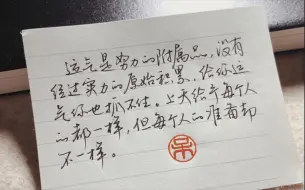 运气是努力的附属品，没有
经过实力的原始积累，给你运
气你也抓不住。上天给予每个人
的都一样，但每个人的准备却
不一样。